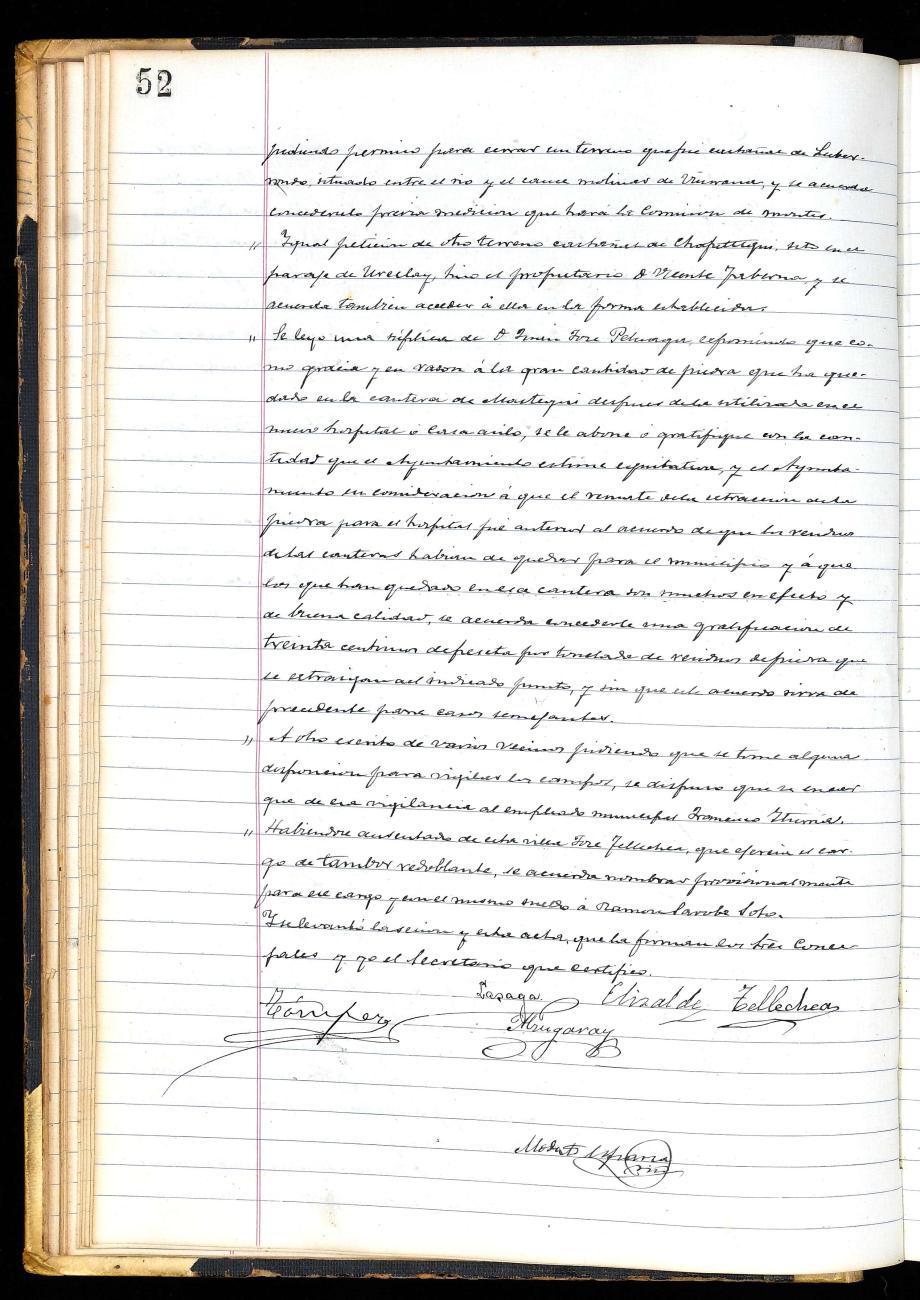 52
pidiendo permiso para cerrar un terreno que fue castañal de
rondo, situado entre el rio y el cauce molinar de y se acuerda
concederselo previa medicion que hará la Comision de montes.
" Igual peticion de otro terreno castañal de sito en el
paraje de hizo el propietario D Vicente Taberna, y se
acuerda tambien acceder á ella en la forma establecida.
" Se leyó una súplica de D Juan José exponiendo que co-
mo gracia y en razon á la gran cantidad de piedra que ha que-
dado en la cantera de despues de la utilizada en el
nuevo hospital ó Casa asilo, se le abone ó gratifique con la can-
tidad que el Ayuntamiento estime equitativa, y el Ayunta-
miento en consideracion á que el remate de la extraccion de la
piedra para el hospital fué anterior al acuerdo de que los residuos
de las canteras habian de quedar para el municipio y á que
los que han quedado en esa cantera son muchos en efecto y
de buena calidad, se acuerda concederle una gratificacion de
treinta centimos de peseta por tonelada de residuos de piedra que
se extraigan del indicado punto, y sin que este acuerdo sirva de
precedente para casos semejantes.
" A otro escrito de varios vecinos pidiendo que se tome alguna
disposicion para vigilar los campos, se dispuso que se encar
gue de esa vigilancia al empleado municipal Francisco Iturria.
" Habiendose ausentado de esta villa José Tellechea, que ejercia el car-
go de tambor redoblante, se acuerda nombrar provisionalmente
para ese cargo y con el mismo sueldo á Ramon Sarobe Soto.
Y se levantó la sesion y esta acta, que la firman los tres Conce-
jales y yo el Secretario que certifico.
Lazaga Elizalde Tellechea
Arrugaray
Modesto